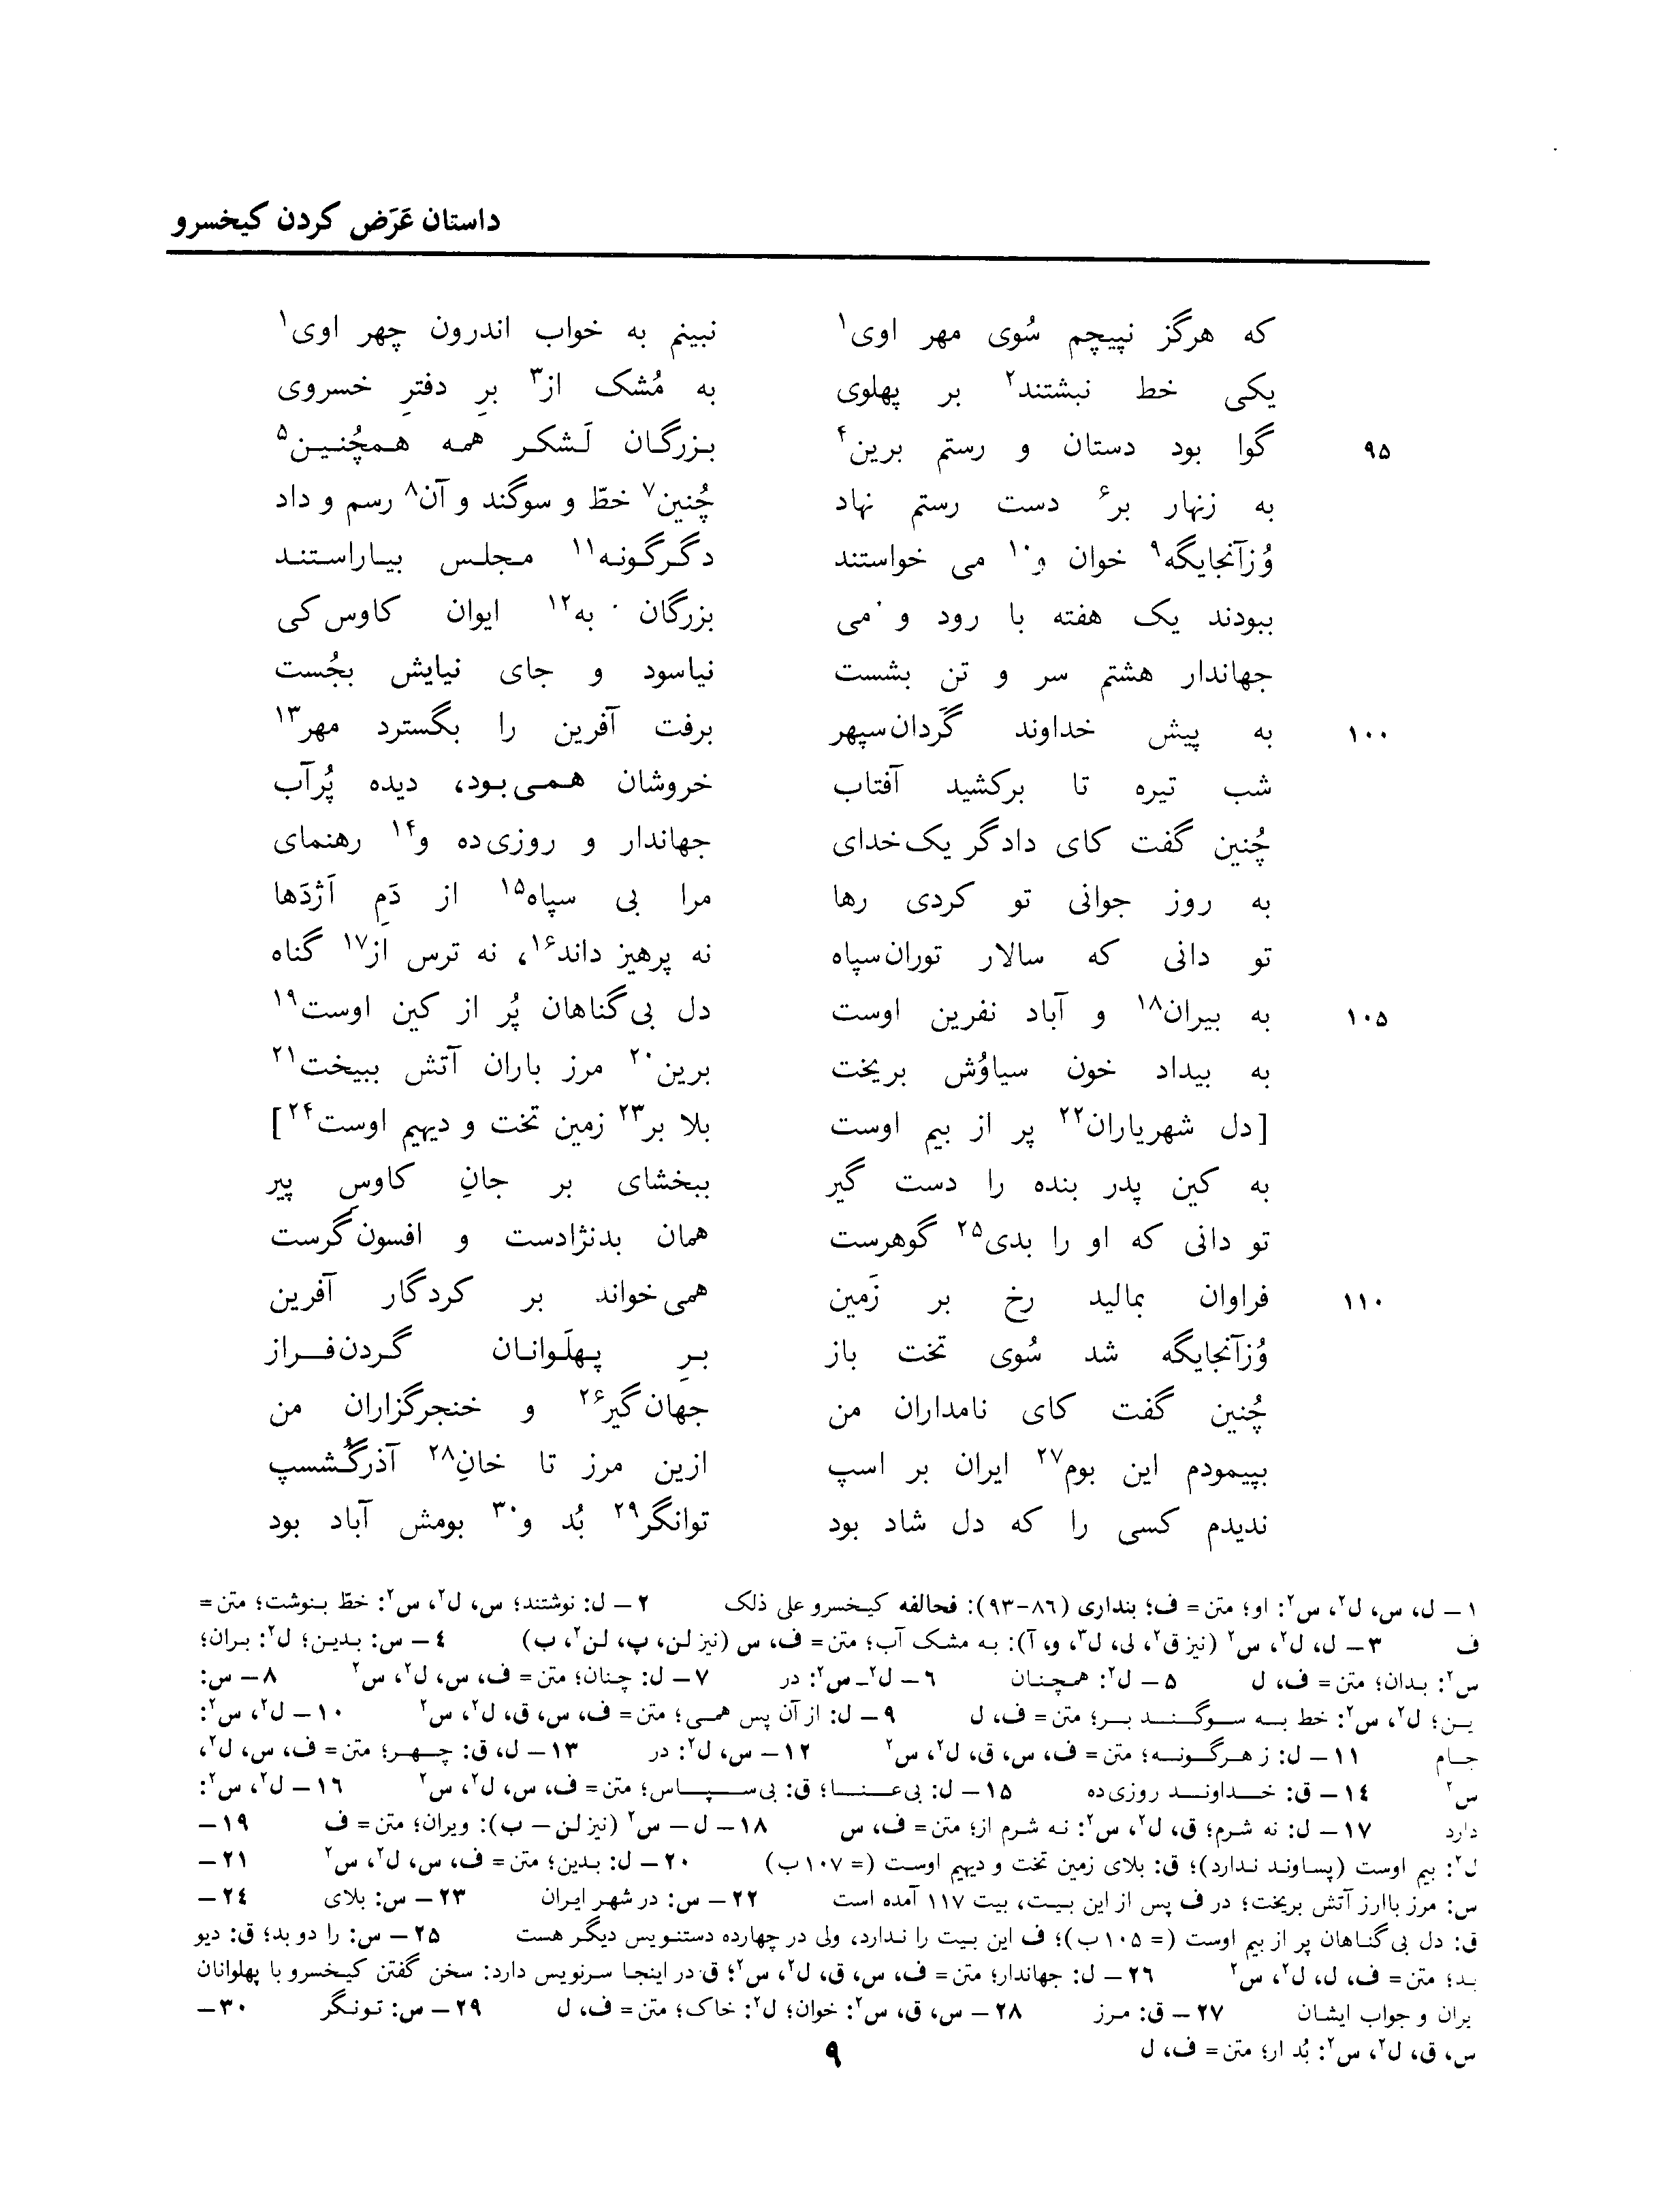 داستان عَرَض کردن کیخسرو
که هرگز نپیچم سُوی مهر اوی۱ نبینم به خواب اندرون چهر اوی۱
یکی خط نبشتند۲ بر پهلوی به مُشک از۳ برِ دفترِ خسروی
۹۵ گوا بود دستان و رستم برین۴ بزرگان لَشکر همه همچُنین۵
به زنهار بر۶ دست رستم نهاد چُنین۷ خطّ و سوگند و آن۸ رسم و داد
وُزآنجایگه۹ خوان و۱۰ می خواستند دگرگونه۱۱ مجلس بیاراستند
ببودند یک هفته با رود و می بزرگان به۱۲ ایوان کاوس کی
جهاندار هشتم سر و تن بشست نیاسود و جای نیایش بجُست
۱۰۰ به پیش خداوند گَردان‌سپهر برفت آفرین را بگسترد مهر۱۳
شب تیره تا برکشید آفتاب خروشان همی‌بود، دیده پُرآب
چُنین گفت کای دادگر یک‌خدای جهاندار و روزی‌ده و۱۴ رهنمای
به روز جوانی تو کردی رها مرا بی سپاه۱۵ از دَمِ اَژدَها
تو دانی که سالار توران‌سپاه نه پرهیز داند۱۶، نه ترس از۱۷ گناه
۱۰۵ به بیران۱۸ و آباد نفرین اوست دل بی‌گناهان پُر از کین اوست۱۹
به بیداد خون سیاوُش بریخت برین۲۰ مرز باران آتش ببیخت۲۱
[دل شهریاران۲۲ پر از بیم اوست بلا بر۲۳ زمین تخت و دیهیم اوست۲۴]
به کین پدر بنده را دست گیر ببخشای بر جانِ کاوسِ پیر
تو دانی که او را بدی۲۵ گوهرست همان بدنژادست و افسون‌گرست
۱۱۰ فراوان بمالید رخ بر زَمین همی‌خواند بر کردگار آفرین
وُزآنجایگه شد سُوی تخت باز برِ پهلَوانان گردن‌فراز
چُنین گفت کای نامداران من جهان‌گیر۲۶ و خنجرگزاران من
بپیمودم این بوم۲۷ ایران بر اسپ ازین مرز تا خانِ۲۸ آذرگُشسپ
ندیدم کسی را که دل شاد بود توانگر۲۹ بُد و۳۰ بومش آباد بود
۱ – ل، س، ل۲، س۲: او؛ متن = ف؛ بنداری (۸۶–۹۳): فحالفه کیخسرو علی ذلک ۲ – ل: نوشتند؛ س، ل۲، س۲: خطّ بنوشت؛ متن =
ف ۳ – ل، ل۲، س۲ (نیز ق۲، لی، ل۳، و، آ): به مشک آب؛ متن = ف، س (نیز لن، پ، لن۲، ب) ۴ – س: بدین؛ ل۲: بران؛
س۲: بدان؛ متن = ف، ل ۵ – ل۲: همچنان ۶ – ل۲ـ س۲: در ۷ – ل: چنان؛ متن = ف، س، ل۲، س۲ ۸ – س:
ین؛ ل۲، س۲: خط به سوگند بر؛ متن = ف، ل ۹ – ل: از آن پس همی؛ متن = ف، س، ق، ل۲، س۲ ۱۰ – ل۲، س۲:
جام ۱۱ – ل: ز هرگونه؛ متن = ف، س، ق، ل۲، س۲ ۱۲ – س، ل۲: در ۱۳ – ل، ق: چهر؛ متن = ف، س، ل۲،
س۲ ۱۴ – ق: خداوند روزی‌ده ۱۵ – ل: بی‌عنا؛ ق: بی‌سپاس؛ متن = ف، س، ل۲، س۲ ۱۶ – ل۲، س۲:
دارد ۱۷ – ل: نه شرم؛ ق، ل۲، س۲: نه شرم از؛ متن = ف، س ۱۸ – ل – س۲ (نیز لن – ب): ویران؛ متن = ف ۱۹ –
ل۲: بیم اوست (پساوند ندارد)؛ ق: بلای زمین تخت و دیهیم اوست (= ۱۰۷ ب) ۲۰ – ل: بدین؛ متن = ف، س، ل۲، س۲ ۲۱ –
س: مرز باارز آتش بریخت؛ در ف پس از این بیت، بیت ۱۱۷ آمده است ۲۲ – س: در شهر ایران ۲۳ – س: بلای ۲۴ –
ق: دل بی‌گناهان پر از بیم اوست (= ۱۰۵ ب)؛ ف این بیت را ندارد، ولی در چهارده دستنویس دیگر هست ۲۵ – س: را دو بد؛ ق: دیو
بد؛ متن = ف، ل، ل۲، س۲ ۲۶ – ل: جهاندار؛ متن = ف، س، ق، ل۲، س۲؛ ق در اینجا سرنویس دارد: سخن گفتن کیخسرو با پهلوانان
یران و جواب ایشان ۲۷ – ق: مرز ۲۸ – س، ق، س۲: خوان؛ ل۲: خاک؛ متن = ف، ل ۲۹ – س: تونگر ۳۰ –
س، ق، ل۲، س۲: بُد ار؛ متن = ف، ل
۹